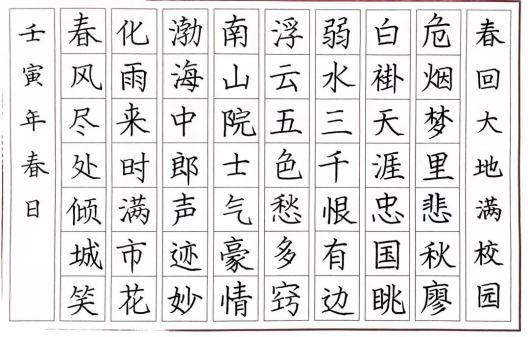 春回大地满校园
危烟梦里悲秋廖
白褂天涯忠国眺
弱水三千恨有边
浮云五色愁多窍
南山院士气豪情
渤海中郎声迹妙
化雨来时满市花
春风尽处倾城笑
壬寅年春日